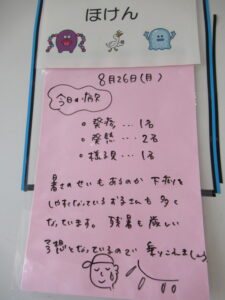 ほけん
8月26日(月)
今日の病欠
○ 発疹… 1名
○ 発熱… 2名
○ 様子見… 1名
暑さのせいもあるのか 下痢を
しやすくなっているお子さんも多く
なっています。残暑も厳しい
予想となっているので 乗りこえましょ